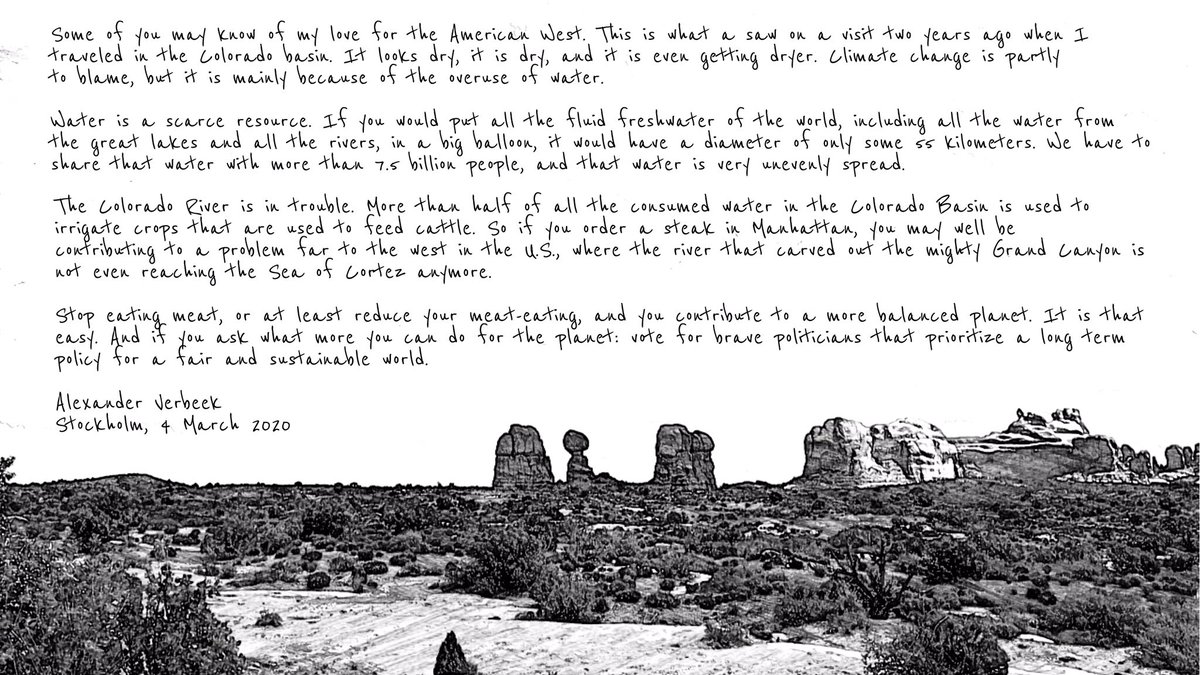 Some of you may know of my love for the American West. This is what a saw on a visit two years ago when I
traveled in the Colorado basin. It looks dry, it is dry, and it is even getting dryer. Climate change is partly
to blame, but it is mainly because of the overuse of water.
Water is a scarce resource. If you would put all the fluid freshwater of the world, including all the water from
the great lakes and all the rivers, in a big balloon, it would have a diameter of only some 55 kilometers. We have to
share that water with more than 7.5 billion people, and that water is very unevenly spread.
The Colorado River is in trouble. More than half of all the consumed water in the Colorado Basin is used to
irrigate crops that are used to feed cattle. So if you order a steak in Manhattan, you may well be
contributing to a problem far to the west in the U.S., where the river that carved out the mighty Grand Canyon is
not even reaching the Sea of Cortez anymore.
Stop eating meat, or at least reduce your meat-eating, and you contribute to a more balanced planet. It is that
easy. And if you ask what more you can do for the planet: vote for brave politicians that prioritize a long term
policy for a fair and sustainable world.
Alexander Verbeek
Stockholm, 4 March 2020